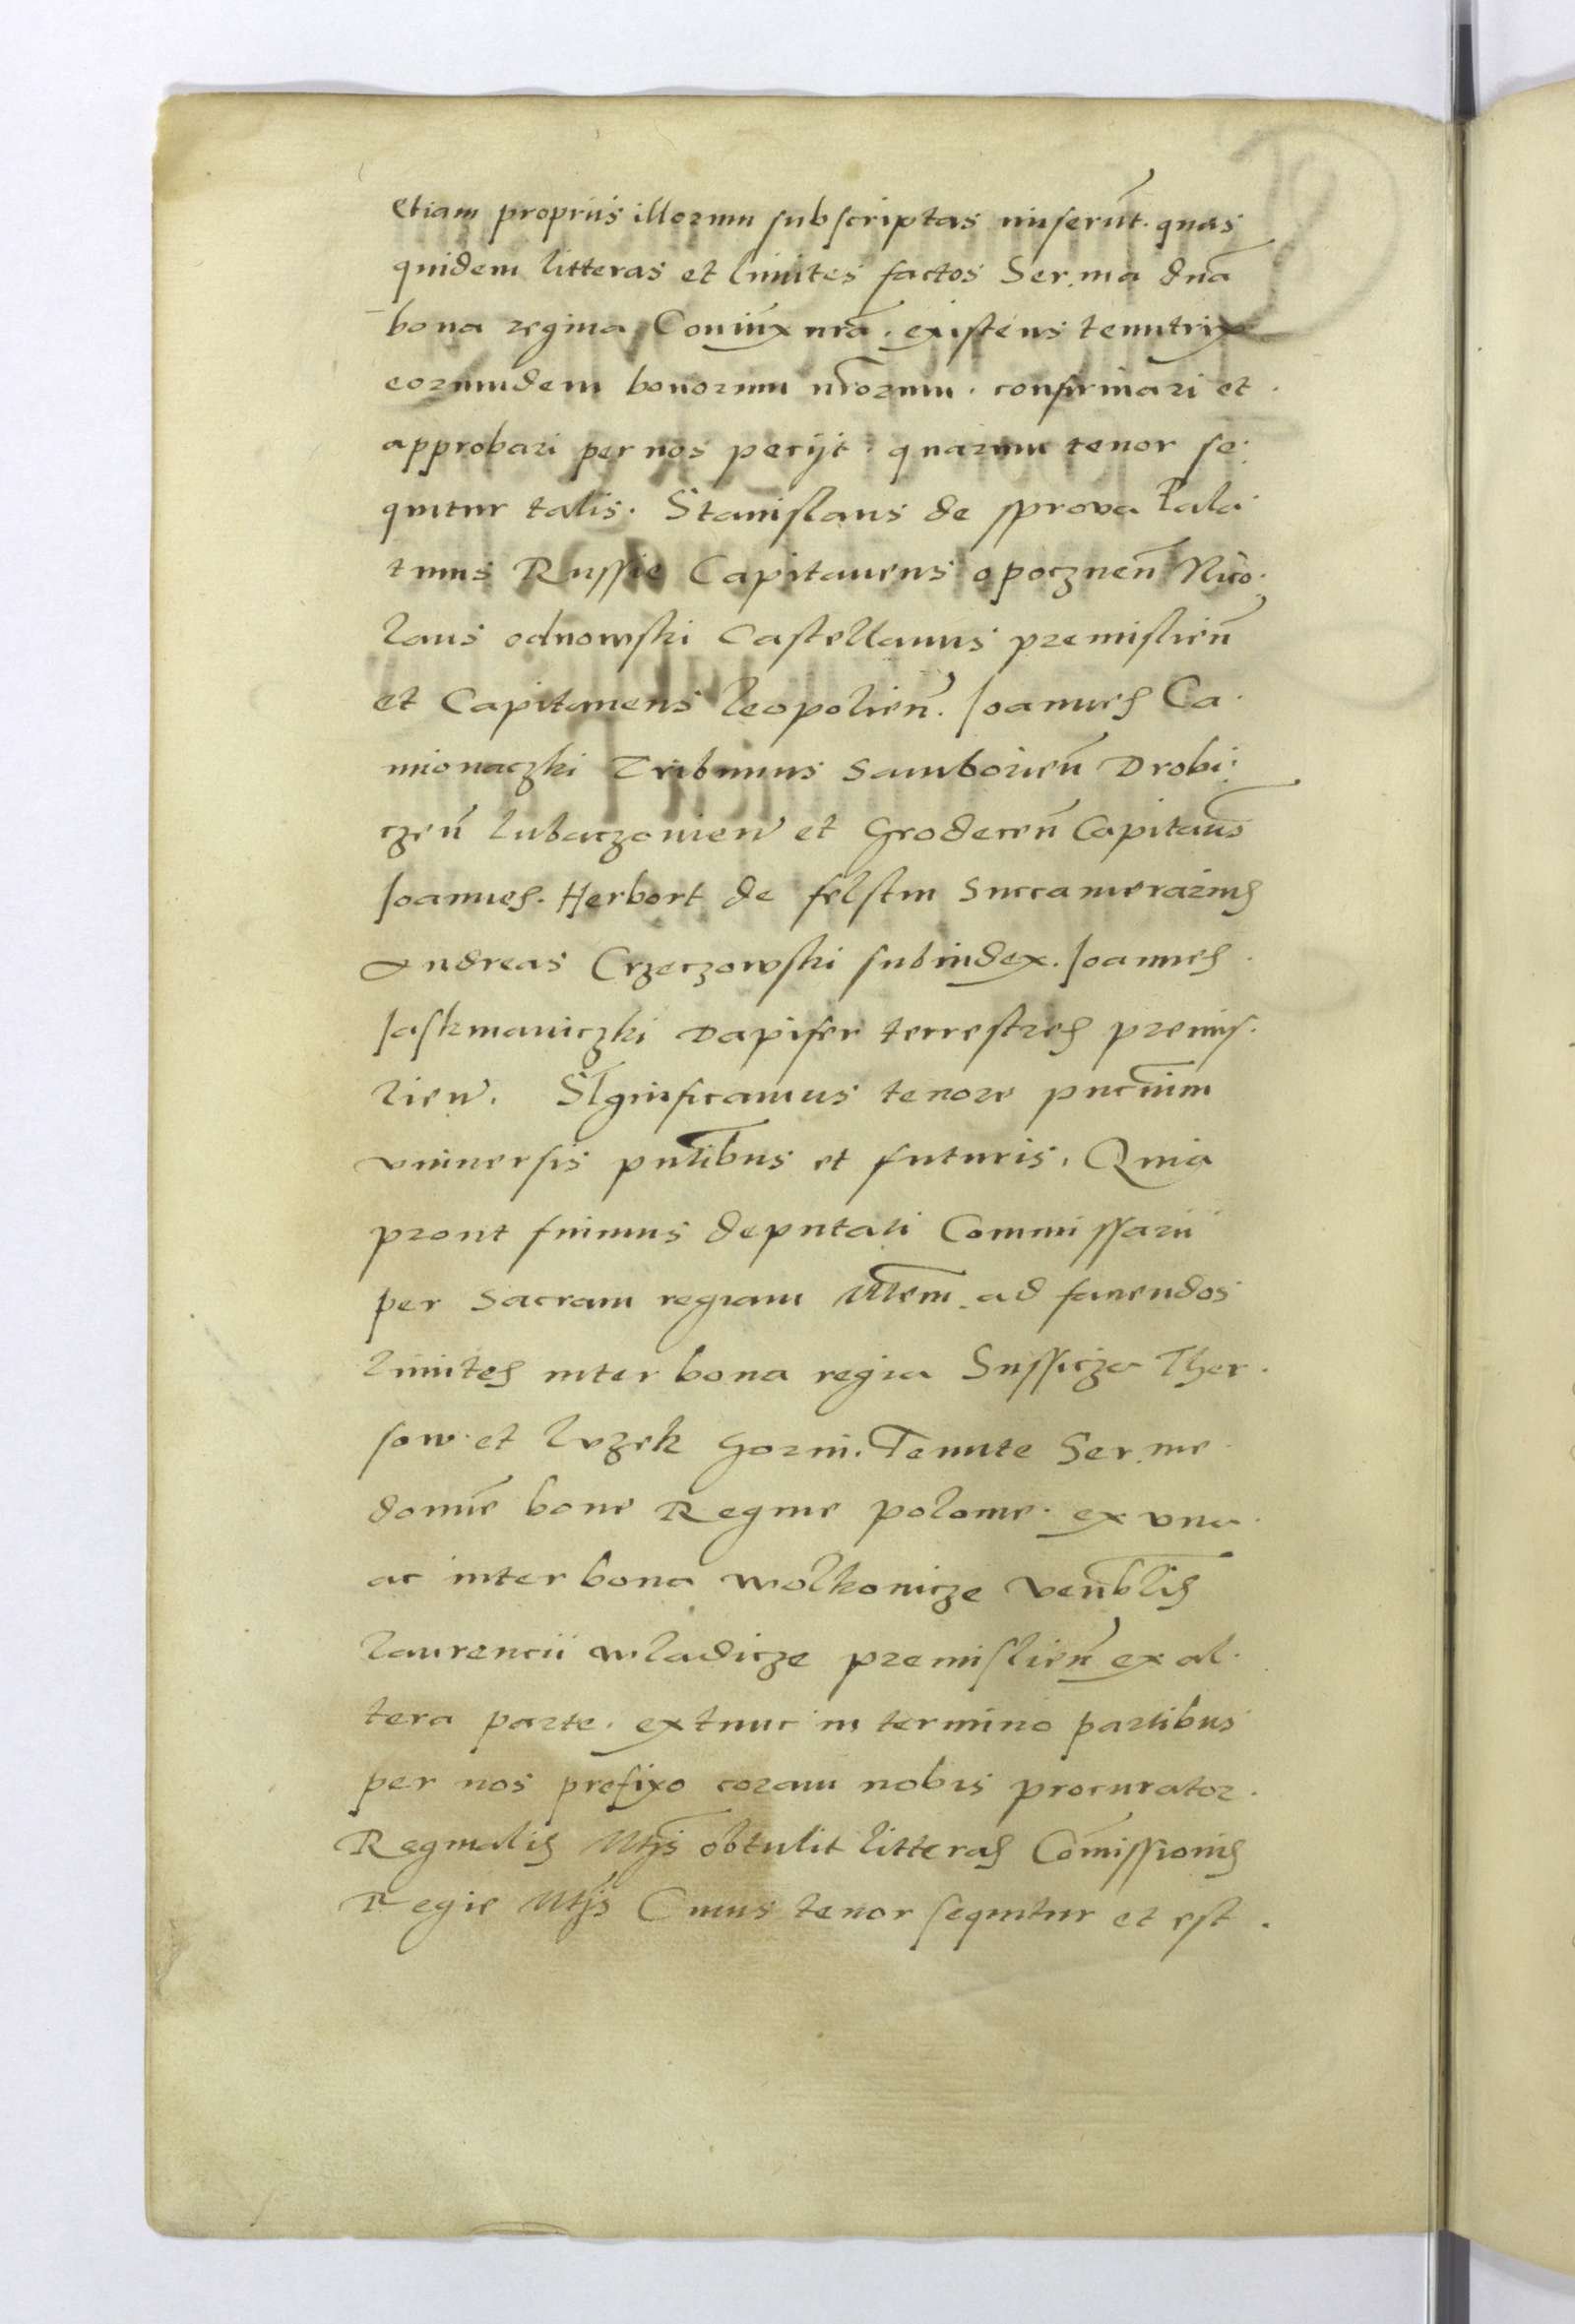 etiam propriis illorum subscriptas miserūt. quas
quidem litteras et limites factos Ser.ma dnā
bona regina Coniūx nrā. existens tenutrix
eorumdem bonorum nrōrum. confirmari et
approbari per nos petijt. quarum tenor se.
quitur talis. Stanislaus de sprova Pala
tinus Russie Capitaneus opocznen̄ Nico.
laus odnowski Castellanus premislien̄
et Capitaneus leopolien̄. Joannes Ca.
mionaczki Tribunus Samborien̄ Drobi:
czen̄ lubaczovien̄ et Grodecen̄ Capitan̄s
Joannes. Herbort de felstin Succamerarius
Andreas Crzeczowski subiudex. Joannes
Jaskmaniczki Dapifer terrestres premis.
lien̄. SIgnificamus tenore pn̄tium
vniuersis pn̄tibus et futuris. Quia
prout fuimus deputati Commissarii
per Sacram regiam Mtēm ad faciendos
limites inter bona regia Sussicza Ther.
sow et lvzek Gorni. Tenute Ser.me
domīe bone Regine polonie. ex vna.
ac inter bona wolkonicze ven̄blis
laurencii wladicze premislien̄ ex al.
tera parte. extunc in termino partibus
per nos prefixo coram nobis procurator.
Reginalis Mtis obtulit litteras Com̄issionis
Regie Mtis Cuius tenor sequitur et est.